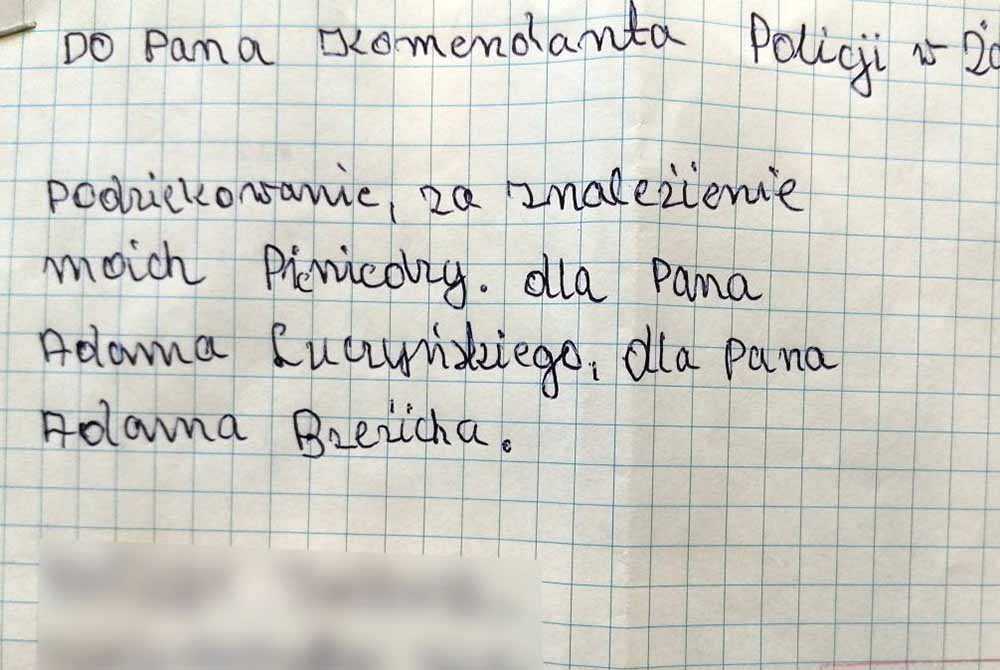 DO Pana Komendanta Policji w
Podziękowanie, za znaleźienie
moich Pienicdzy. dla Pana
Adama Łuczyńskiego, dla Pana
Adama Brzeźicha.